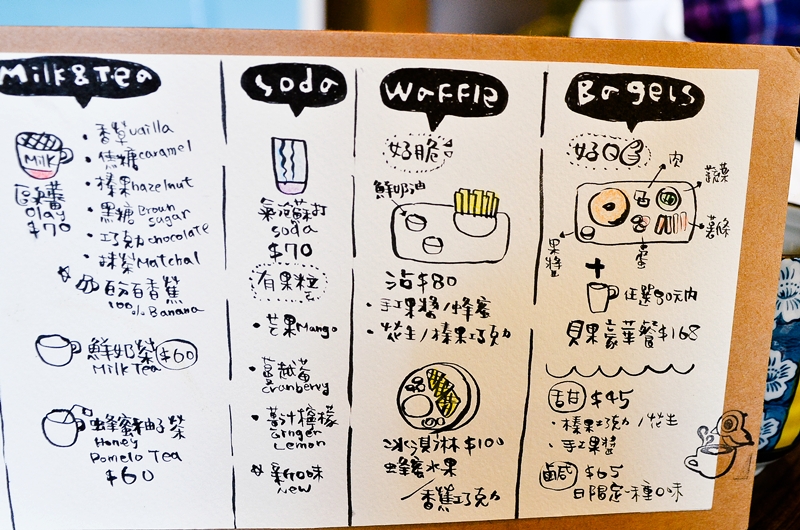 Milk & Tea
香草 vanilla
焦糖 caramel
Milk
榛果 hazelnut
歐蕾
Olay
$70
黑糖 Brown
sugar
巧克力 chocolate
抹茶 Matchal
百分百香蕉
100% Banana
鮮奶茶 $60
Milk Tea
蜂蜜柚子茶
Honey
Pomelo Tea
$60
Soda
氣泡蘇打
soda
$70
有果粒
芒果 Mango
蔓越莓
Cranberry
薑汁檸檬
Ginger
Lemon
新口味
New
Waffle
好脆
鮮奶油
沾 $80
手工果醬/蜂蜜
花生/榛果巧克力
冰淇淋 $100
蜂蜜水果
/香蕉巧克力
Bagels
好QQ
肉
蔬菜
薯條
蛋
果醬
+
任選80元內
貝果豪華餐 $168
甜 $45
榛果巧克力/花生
手工果醬
鹹 $65
日限定一種口味